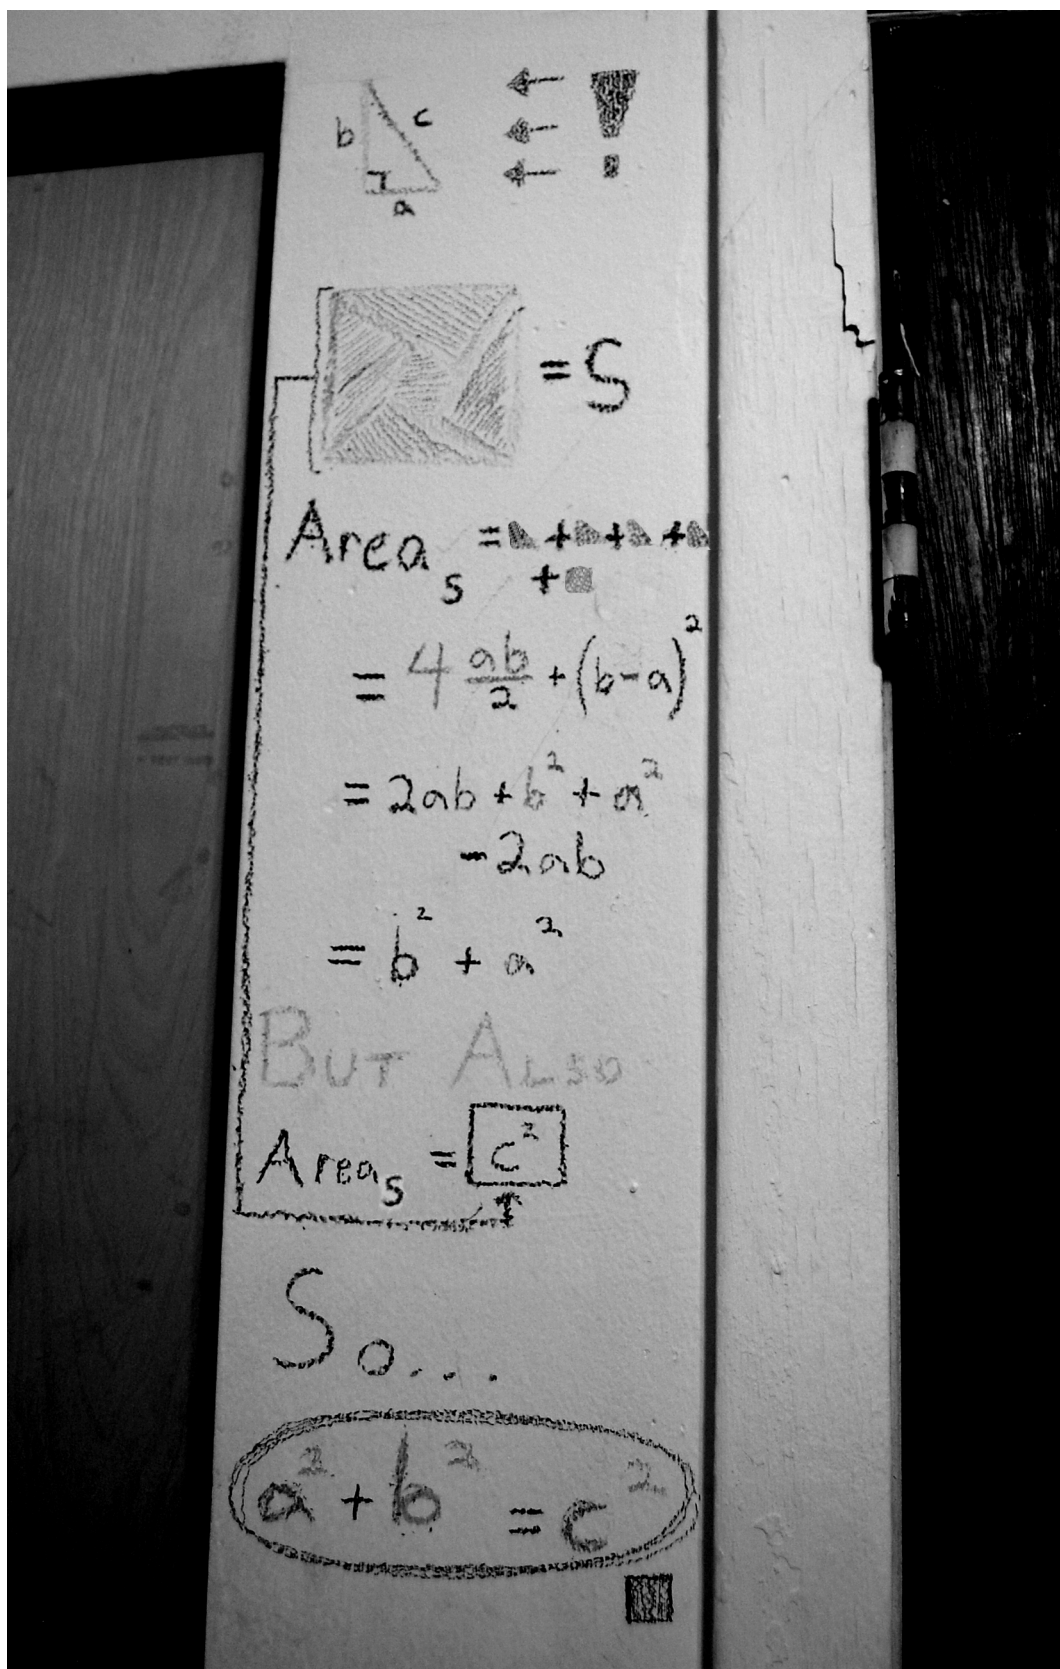 b c
a
!
= S
Area_s = + + +
+
= 4 ab/2 + (b-a)²
= 2ab + b² + a²
- 2ab
= b² + a²
BUT ALSO
Area_s = c²
So...
a² + b² = c²